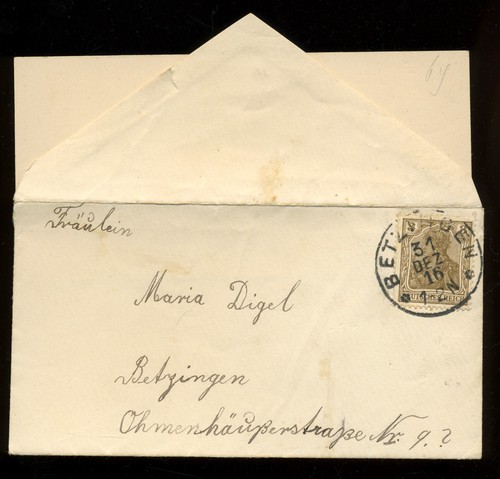 69
Fräulein
BETZINGEN
31
DEZ
16
1-2N
DEUTSCHES REICH
Maria Digel
Betzingen
Ohmenhäuserstraße Nr. 9.?